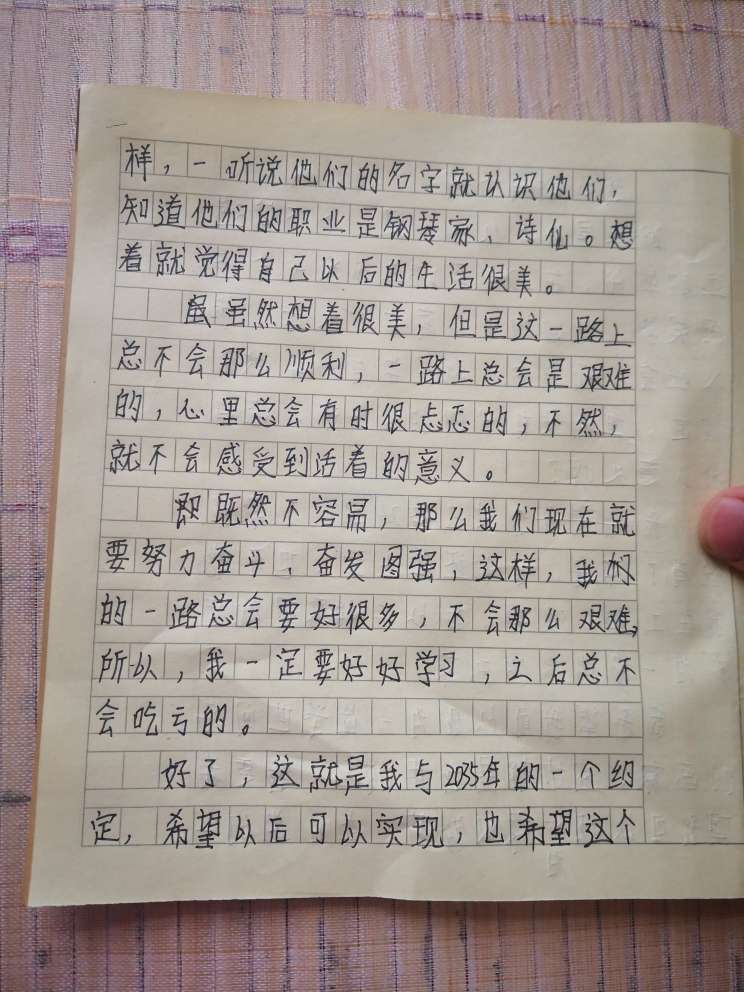 样，一听说他们的名字就认识他们，
知道他们的职业是钢琴家、诗仙。想
着就觉得自己以后的生活很美。
虽虽然想着很美，但是这一路上
总不会那么顺利，一路上总会是艰难
的，心里总会有时很忐忑的，不然，
就不会感受到活着的意义。
即既然不容易，那么我们现在就
要努力奋斗、奋发图强，这样，我们
的一路总会要好很多，不会那么艰难，
所以，我一定要好好学习，之后总不
会吃亏的。
好了，这就是我与2035年的一个约
定，希望以后可以实现，也希望这个